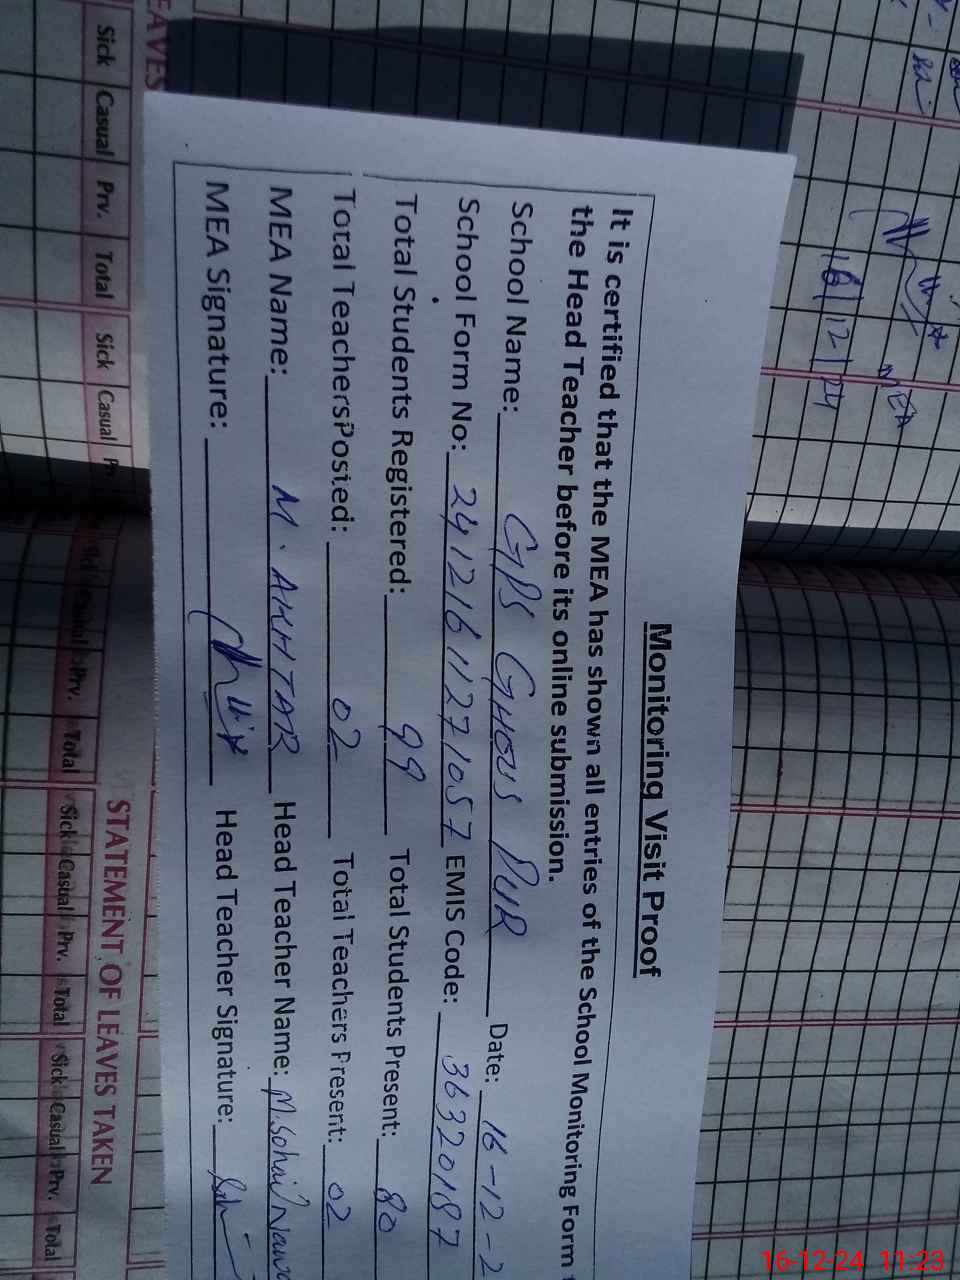 Monitoring Visit Proof
It is certified that the MEA has shown all entries of the School Monitoring Form
the Head Teacher before its online submission.
School Name: GPS GHOUS PUR Date: 16-12-2
School Form No: 24121611271057 EMIS Code: 36320187
Total Students Registered: 99 Total Students Present: 80
Total Teachers Posted: 02 Total Teachers Present: 02
MEA Name: M. AKHTAR Head Teacher Name: M. Sohail Nawa
MEA Signature: Head Teacher Signature:
MEA
16/12/24
EAVES
Sick Casual Prv. Total Sick Casual
Prv. Total Sick Casual Prv. Total Sick Casual Prv. Total
STATEMENT OF LEAVES TAKEN
16-12-24 11:23